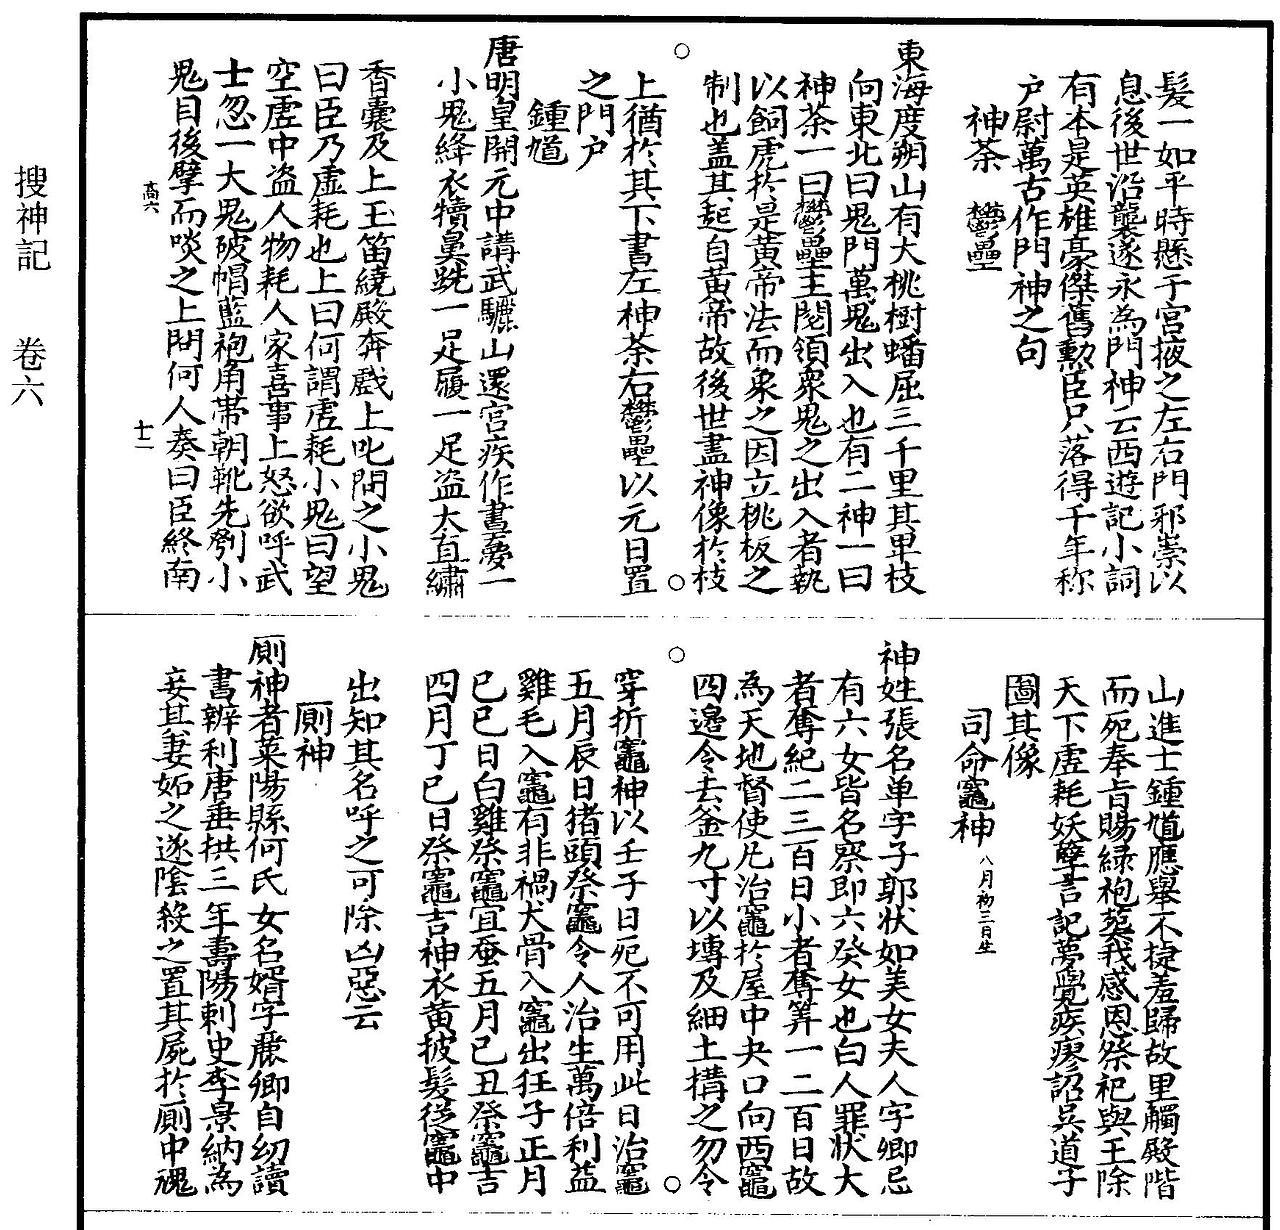 髮一如平時懸于宮掖之左右門邪祟以
息後世沿襲遂永為門神云西遊記小詞
有本是英雄豪傑舊勳臣只落得千年称
户尉萬古作門神之句
神荼 鬱壘
東海度朔山有大桃樹蟠屈三千里其卑枝
向東北曰鬼門萬鬼出入也有二神一曰
神荼一曰鬱壘主閱領衆鬼之出入者執
以飼虎於是黄帝法而象之因立桃板之
制也盖其起自黄帝故後世畫神像於枝
上猶於其下書左神荼右鬱壘以元日置
之門户
鍾馗
唐明皇開元中講武驪山還宮疾作晝夢一
小鬼絳衣犢鼻跣一足履一足盗太真繡
香囊及上玉笛繞殿奔戲上叱問之小鬼
曰臣乃虚耗也上曰何謂虚耗小鬼曰望
空虚中盗人物耗人家喜事上怒欲呼武
士忽一大鬼破帽藍袍角帶朝靴先刳小
鬼目後擘而啖之上問何人奏曰臣終南
高六
十一
搜神記 卷六
山進士鍾馗應舉不捷羞歸故里觸殿階
而死奉旨賜緑袍葬我感恩祭祀與王除
天下虚耗妖孽言記夢覺疾瘳詔吳道子
圖其像
司命竈神 八月初三日生
神姓張名单字子郭状如美女夫人字卿忌
有六女皆名察即六癸女也白人罪状大
者奪紀二三百日小者奪筭一二百日故
為天地督使凡治竈於屋中央口向西竈
四邊令去釜九寸以塼及細土搆之勿令
穿折竈神以壬子日死不可用此日治竈
五月辰日猪頭祭竈令人治生萬倍利益
雞毛入竈有非禍犬骨入竈出狂子正月
己巳日白雞祭竈宜蚕五月己丑祭竈吉
四月丁巳日祭竈吉神衣黄披髮從竈中
出知其名呼之可除凶惡云
厠神
厠神者萊陽縣何氏女名媚字麗卿自幼讀
書辨利唐垂拱三年壽陽刺史李景納為
妾其妻妬之遂陰殺之置其屍於厠中魂